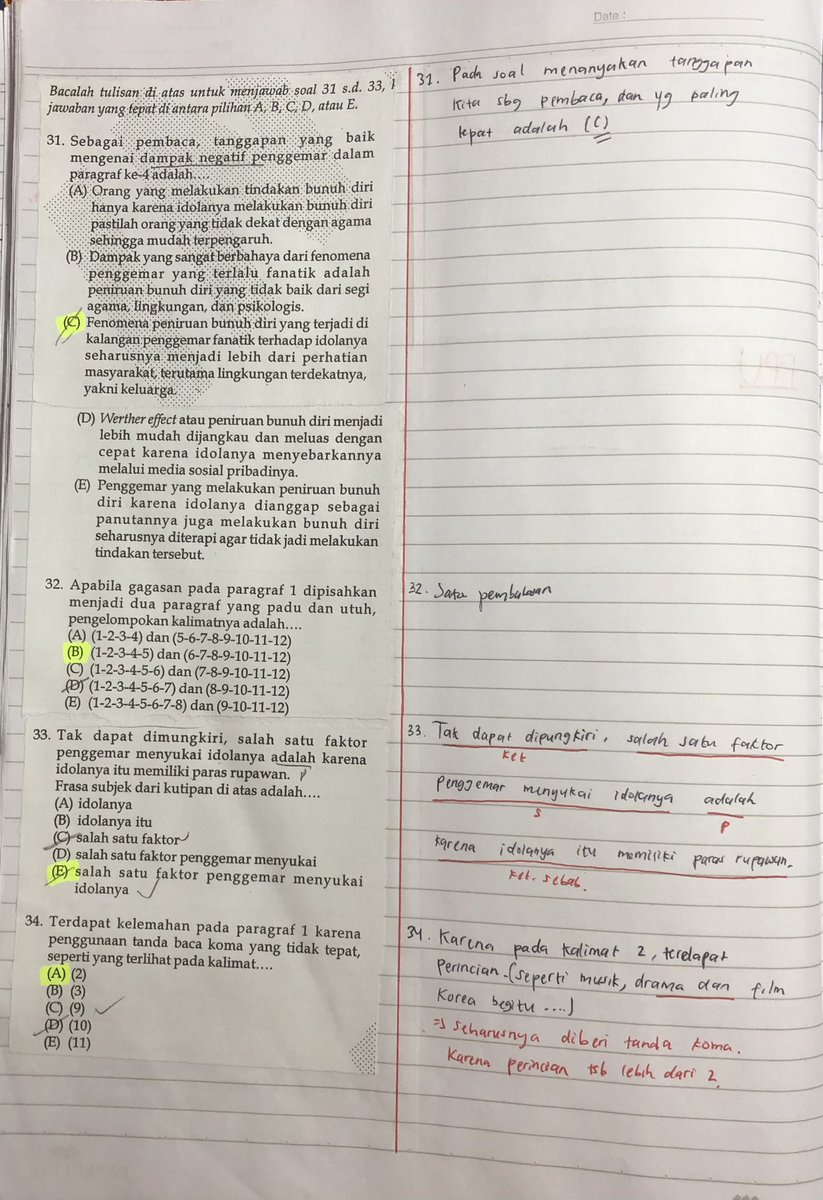 Date :
Bacalah tulisan di atas untuk menjawab soal 31 s.d. 33,
jawaban yang tepat di antara pilihan A, B, C, D, atau E.
31. Sebagai pembaca, tanggapan yang baik
mengenai dampak negatif penggemar dalam
paragraf ke-4 adalah....
(A) Orang yang melakukan tindakan bunuh diri
hanya karena idolanya melakukan bunuh diri
pastilah orang yang tidak dekat dengan agama
sehingga mudah terpengaruh.
(B) Dampak yang sangat berbahaya dari fenomena
penggemar yang terlalu fanatik adalah
peniruan bunuh diri yang tidak baik dari segi
agama, lingkungan, dan psikologis.
(C) Fenomena peniruan bunuh diri yang terjadi di
kalangan penggemar fanatik terhadap idolanya
seharusnya menjadi lebih dari perhatian
masyarakat, terutama lingkungan terdekatnya,
yakni keluarga.
(D) Werther effect atau peniruan bunuh diri menjadi
lebih mudah dijangkau dan meluas dengan
cepat karena idolanya menyebarkannya
melalui media sosial pribadinya.
(E) Penggemar yang melakukan peniruan bunuh
diri karena idolanya dianggap sebagai
panutannya juga melakukan bunuh diri
seharusnya diterapi agar tidak jadi melakukan
tindakan tersebut.
31. Pada soal menanyakan tanggapan
kita sbg pembaca, dan yg paling
tepat adalah (C)
32. Apabila gagasan pada paragraf 1 dipisahkan
menjadi dua paragraf yang padu dan utuh,
pengelompokan kalimatnya adalah....
(A) (1-2-3-4) dan (5-6-7-8-9-10-11-12)
(B) (1-2-3-4-5) dan (6-7-8-9-10-11-12)
(C) (1-2-3-4-5-6) dan (7-8-9-10-11-12)
(D) (1-2-3-4-5-6-7) dan (8-9-10-11-12)
(E) (1-2-3-4-5-6-7-8) dan (9-10-11-12)
32. Satu pembahasan
33. Tak dapat dimungkiri, salah satu faktor
penggemar menyukai idolanya adalah karena
idolanya itu memiliki paras rupawan.
Frasa subjek dari kutipan di atas adalah....
(A) idolanya
(B) idolanya itu
(C) salah satu faktor
(D) salah satu faktor penggemar menyukai
(E) salah satu faktor penggemar menyukai
idolanya
33. Tak dapat dipungkiri, salah satu faktor
ket
Penggemar menyukai idolanya adalah
S P
karena idolanya itu memiliki paras rupawan.
ket. sebab.
34. Terdapat kelemahan pada paragraf 1 karena
penggunaan tanda baca koma yang tidak tepat,
seperti yang terlihat pada kalimat....
(A) (2)
(B) (3)
(C) (9)
(D) (10)
(E) (11)
34. Karena pada kalimat 2, terdapat
perincian (seperti musik, drama dan film
Korea begitu ....)
=> seharusnya diberi tanda koma.
Karena perincian tsb lebih dari 2.